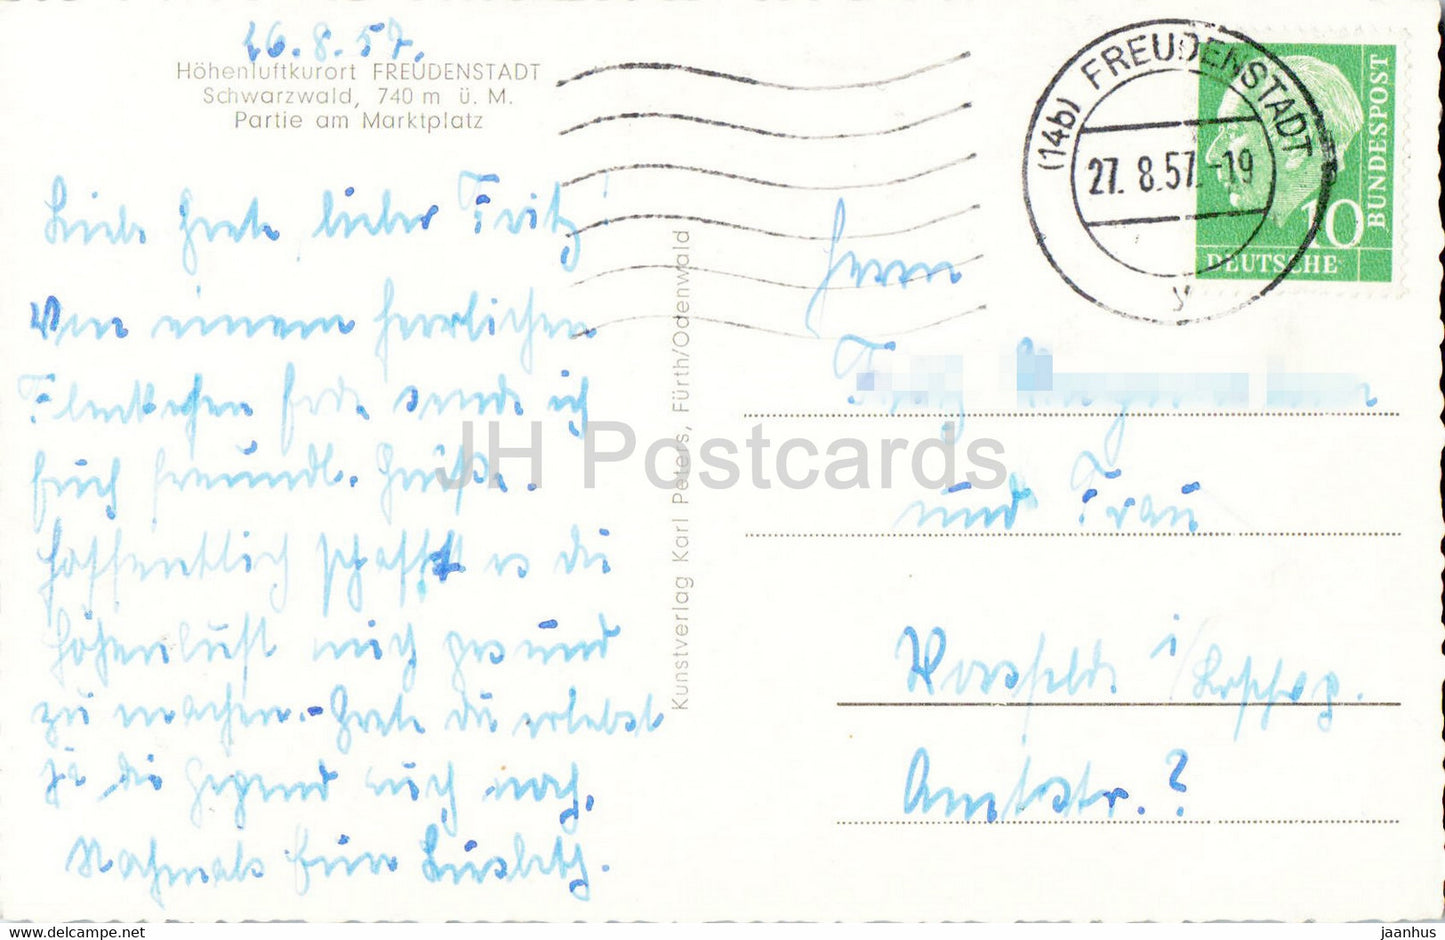 26.8.57.
Höhenluftkurort FREUDENSTADT
Schwarzwald, 740 m ü. M.
Partie am Marktplatz
Liebe Grete lieber Fritz!
Von einem herrlichen
Fleckchen Erde sende ich
Euch freundl. Grüße.
Hoffentlich schafft es die
Höhenluft mich gesund
zu machen. - Grete du erlebst
ja die Gegend auch noch.
Nochmals
Kunstverlag Karl Peters, Fürth/Odenwald
(14b) FREUDENSTADT
27. 8.57.-19
y
BUNDESPOST
10
DEUTSCHE
Herrn
und Frau
Worsfelde i/
Amtsstr. ?
JH Postcards
www.hippostcard.com
jaanhus